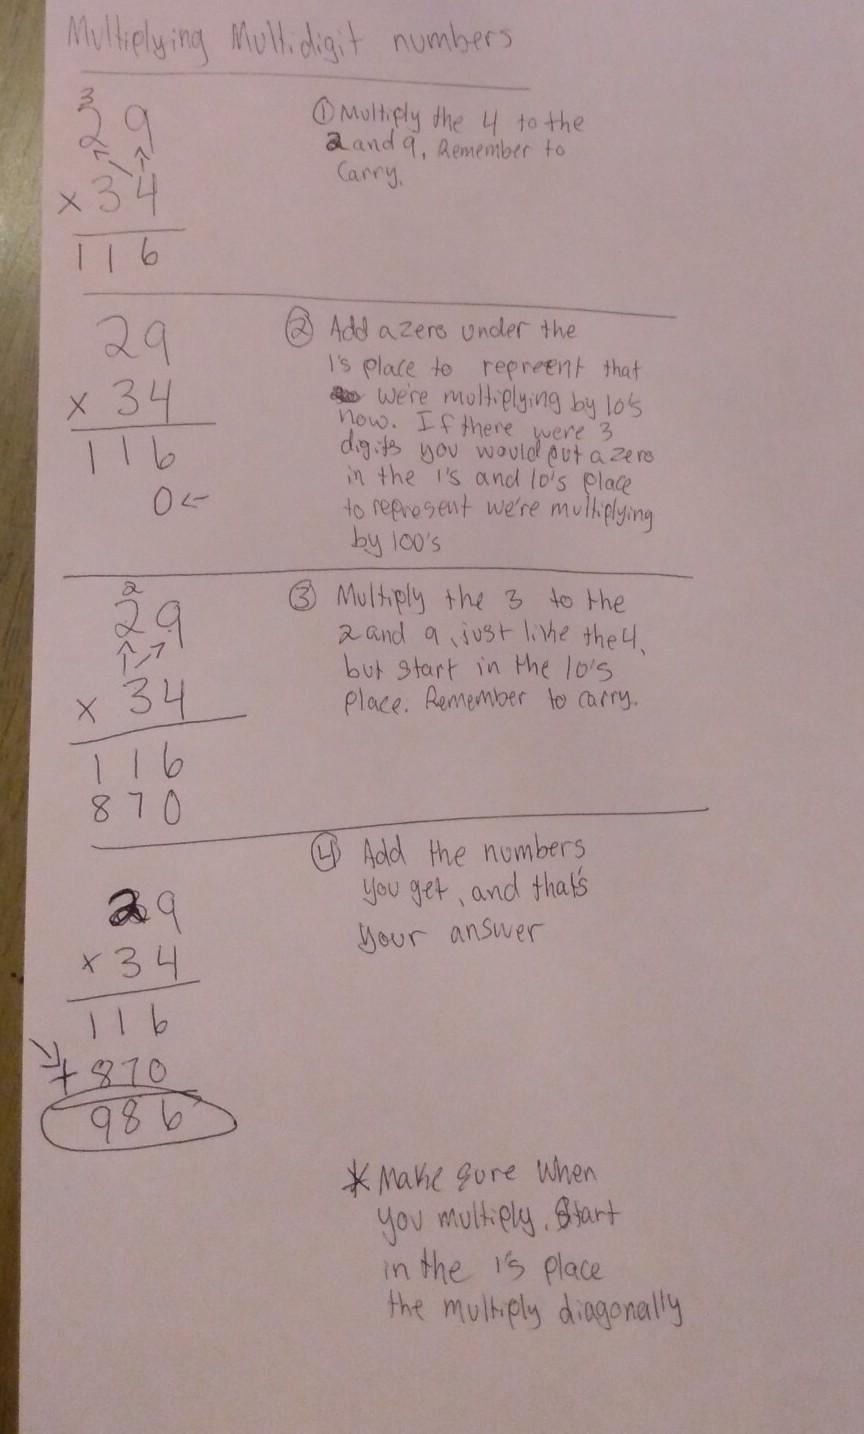 Multiplying Multidigit numbers
3
29
x 34
116
① Multiply the 4 to the
2 and 9, Remember to
Carry.
29
x 34
116
0←
② Add a zero under the
1's place to repreent that
we're multiplying by 10's
now. If there were 3
digits you would put a zero
in the 1's and 10's place
to represent we're multiplying
by 100's
2
29
x 34
116
870
③ Multiply the 3 to the
2 and 9, just like the 4,
but start in the 10's
place. Remember to carry.
29
x 34
116
+ 870
986
④ Add the numbers
you get, and that's
your answer
* Make sure when
you multiply, Start
in the 1's place
the multiply diagonally